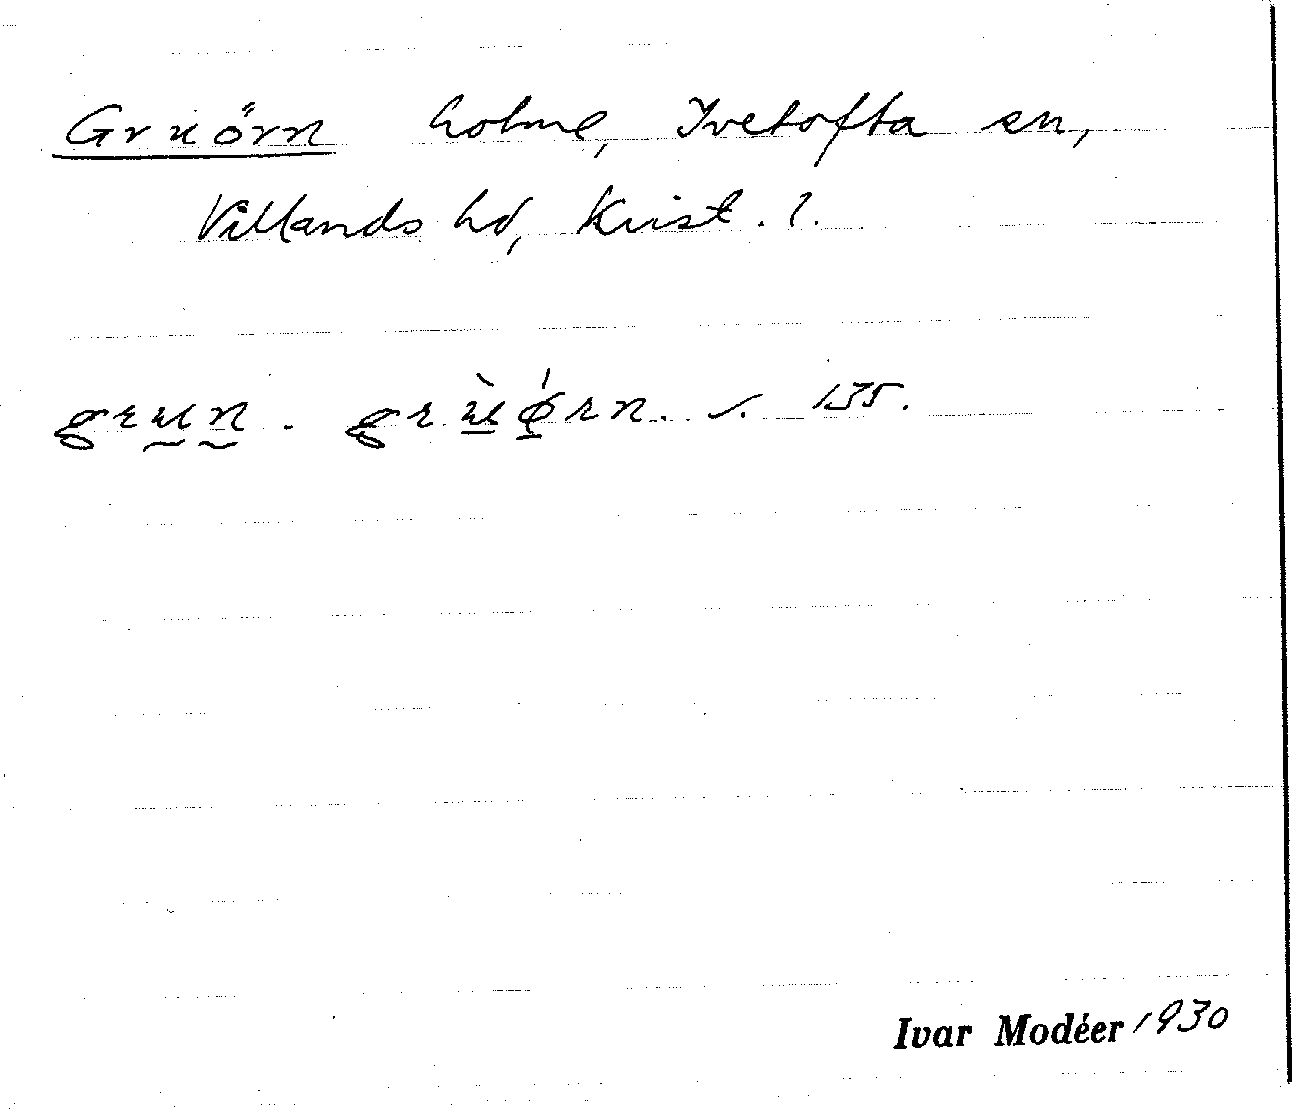 Gruörn holme, Ivetofta sn,
Villands hd, Krist. l.
grun. grùǿrn. s. 135.
Ivar Modéer 1930